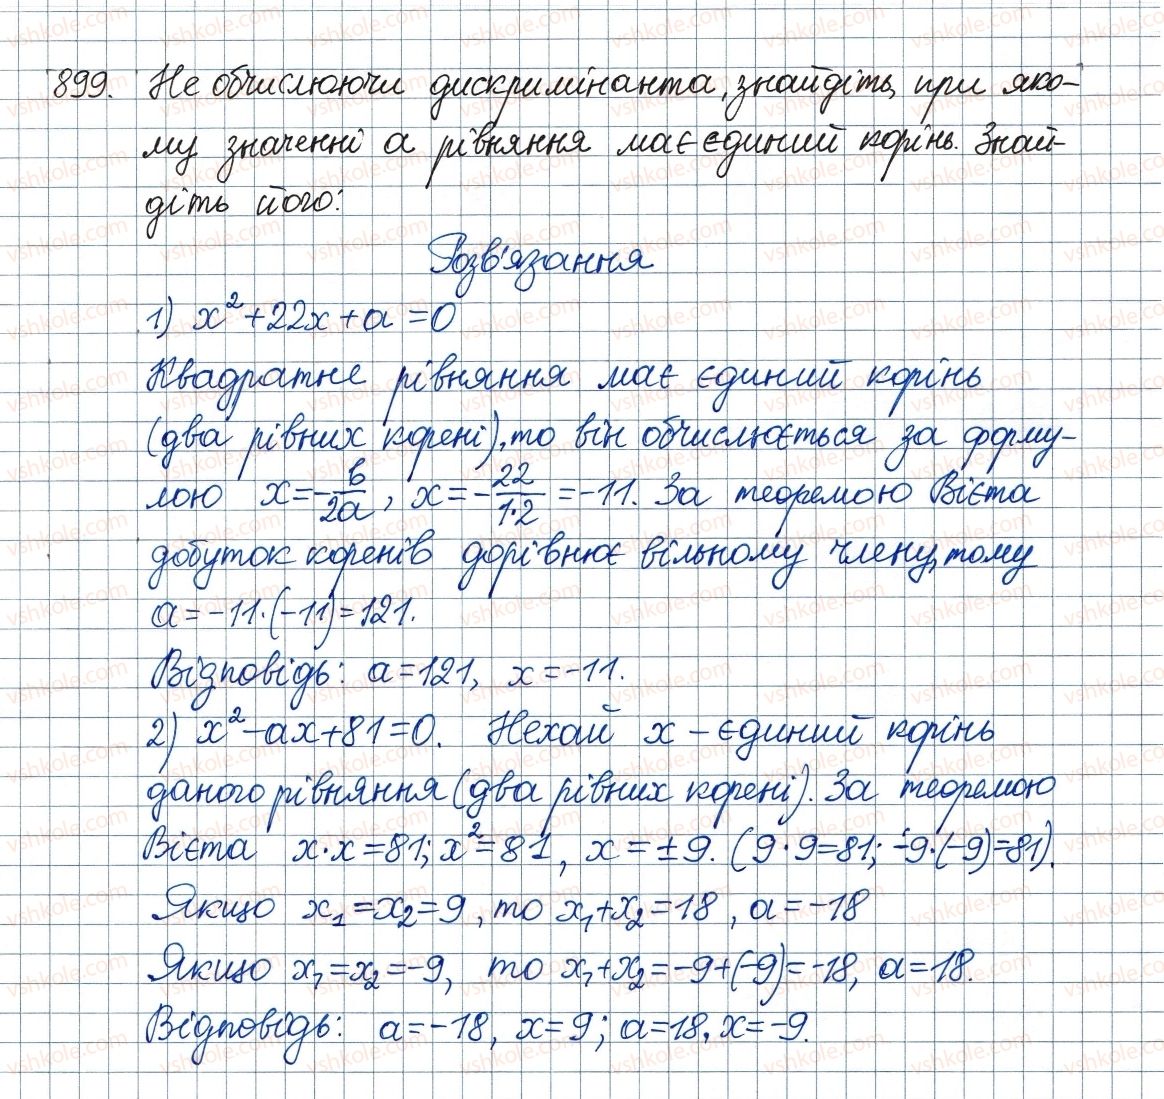 899. Не обчислюючи дискримінанта, знайдіть, при яко-
му значенні a рівняння має єдиний корінь. Знай-
діть його:
Розв'язання
1) x²+22x+a=0
Квадратне рівняння має єдиний корінь
(два рівних корені), то він обчислюється за форму-
лою x=-b/2a, x=-22/1·2=-11. За теоремою Вієта
добуток коренів дорівнює вільному члену, тому
a=-11·(-11)=121.
Відповідь: a=121, x=-11.
2) x²-ax+81=0. Нехай x - єдиний корінь
даного рівняння (два рівних корені). За теоремою
Вієта x·x=81; x²=81, x=±9. (9·9=81; -9·(-9)=81).
Якщо x₁=x₂=9, то x₁+x₂=18, a=-18
Якщо x₁=x₂=-9, то x₁+x₂=-9+(-9)=-18, a=18.
Відповідь: a=-18, x=9; a=18, x=-9.